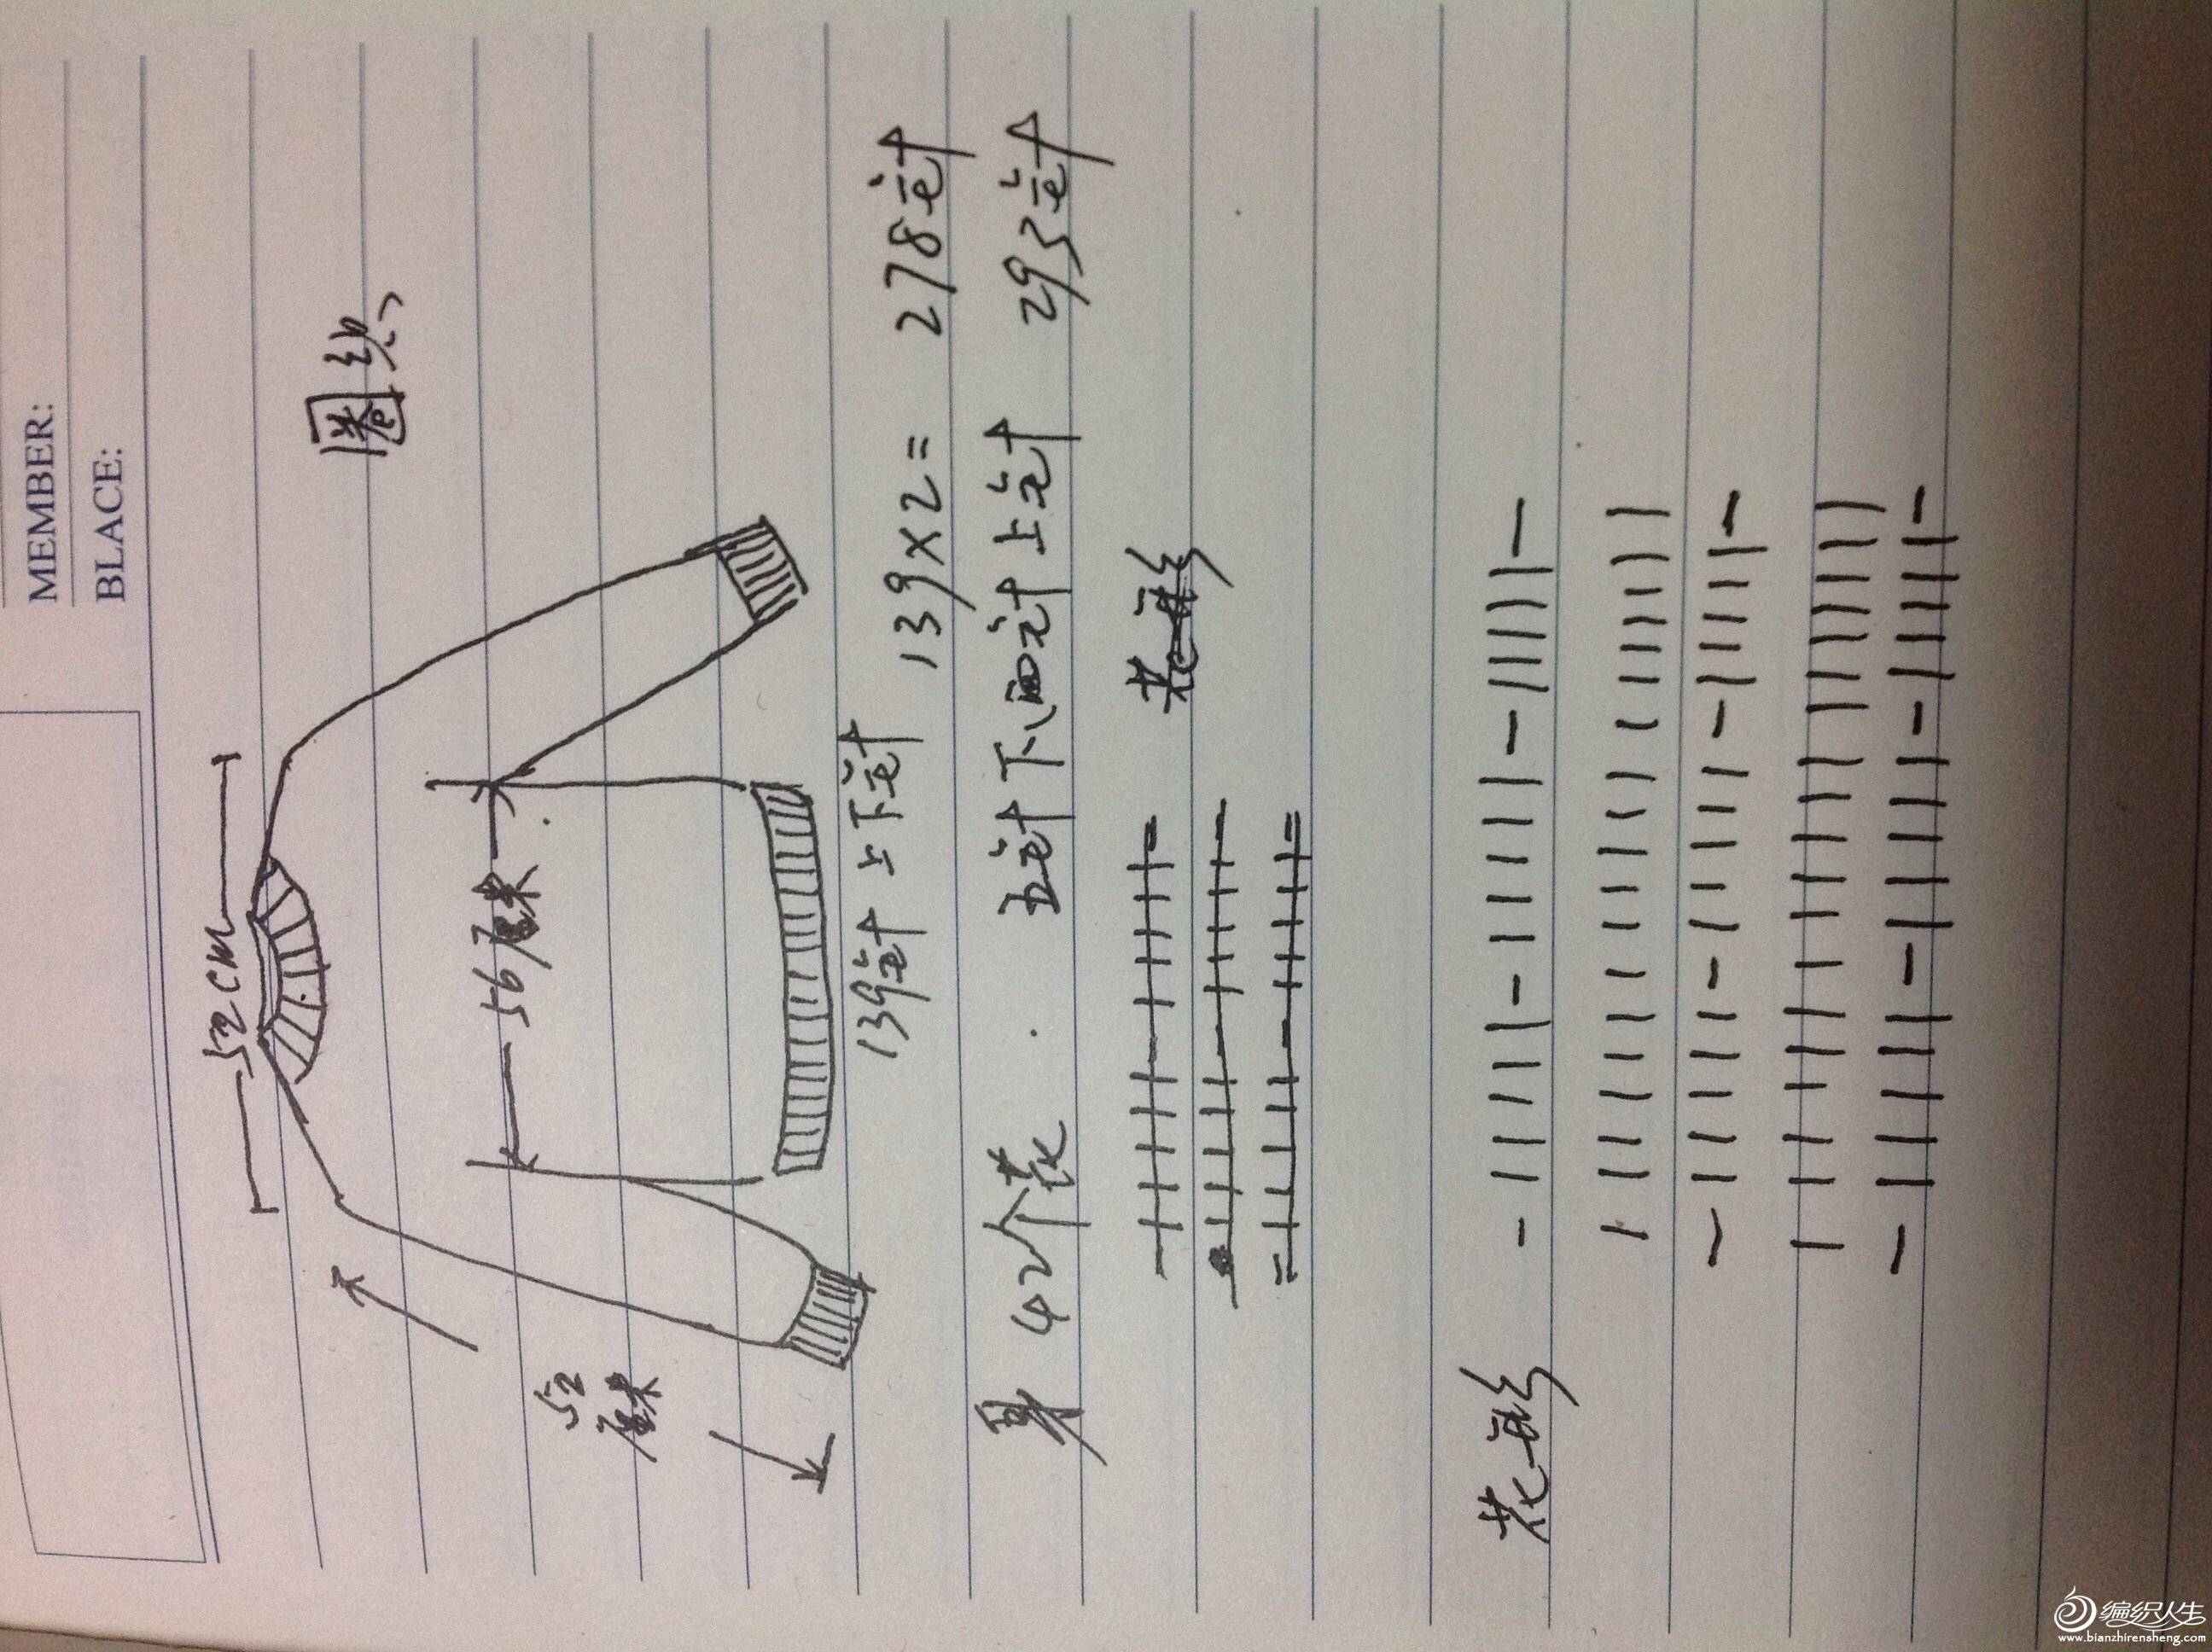 MEMBER:
BLACE:
52cm
圈织
56厘米
52
厘米
139针 上下针 139×2= 278针
身 42个花 五针下面针上针 293针
花形
花形
编织人生
www.bianzhirensheng.com